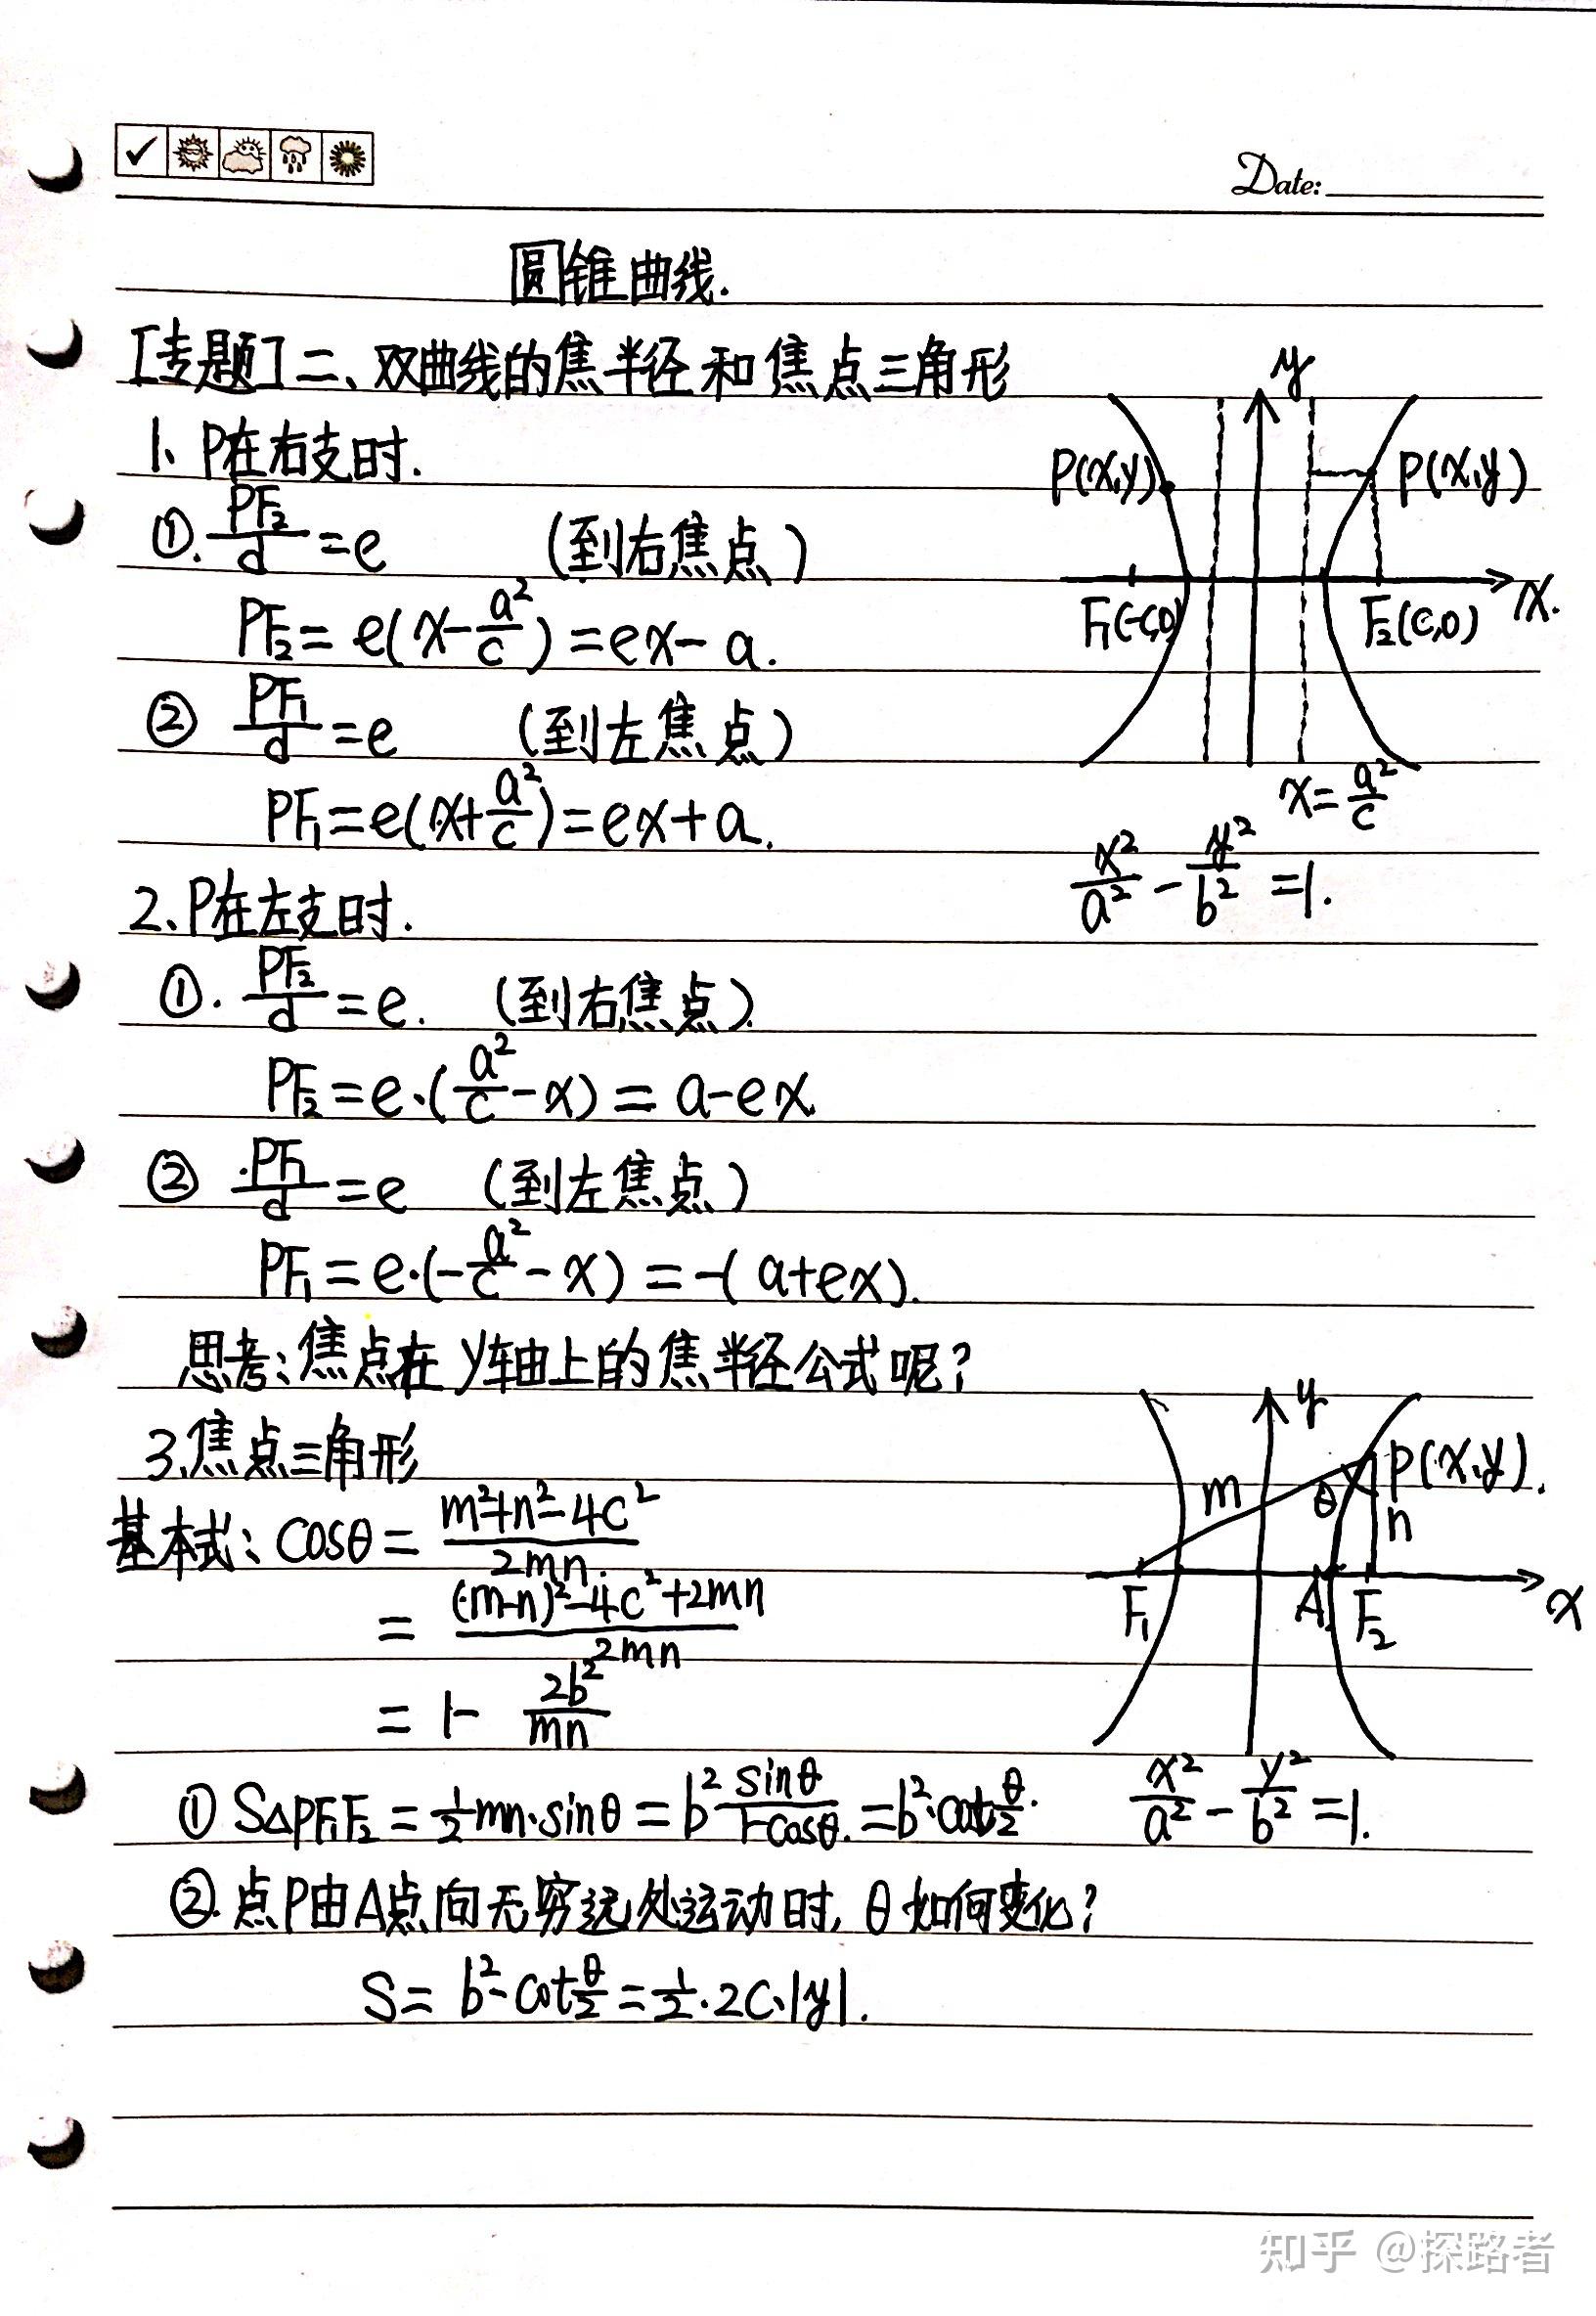 Date:
圆锥曲线.
[专题]二、双曲线的焦半径和焦点三角形
1、P在右支时.
①. PF₂/d = e (到右焦点)
PF₂ = e(x - a²/c) = ex - a.
② PF₁/d = e (到左焦点)
PF₁ = e(x + a²/c) = ex + a.
2、P在左支时.
①. PF₂/d = e. (到右焦点)
PF₂ = e·(a²/c - x) = a - ex
② PF₁/d = e (到左焦点)
PF₁ = e·(-a²/c - x) = -(a+ex).
思考:焦点在y轴上的焦半径公式呢?
3.焦点三角形
基本式: cosθ = (m²+n²-4c²)/2mn.
= ((m-n)²-4c²+2mn)/2mn
= 1 - 2b²/mn
① S△PF₁F₂ = ½mn·sinθ = b² sinθ/(1-cosθ). = b²·cot θ/2.
②.点P由A点向无穷远处运动时, θ如何变化?
S = b²·cot θ/2 = ½·2c·|y|.
y
P(x,y)
P(x,y)
F₁(-c,0)
F₂(c,0)
x.
x = a²/c
x²/a² - y²/b² = 1.
y
P(x,y).
m
θ
n
F₁
A
F₂
x
x²/a² - y²/b² = 1.
知乎 @探路者